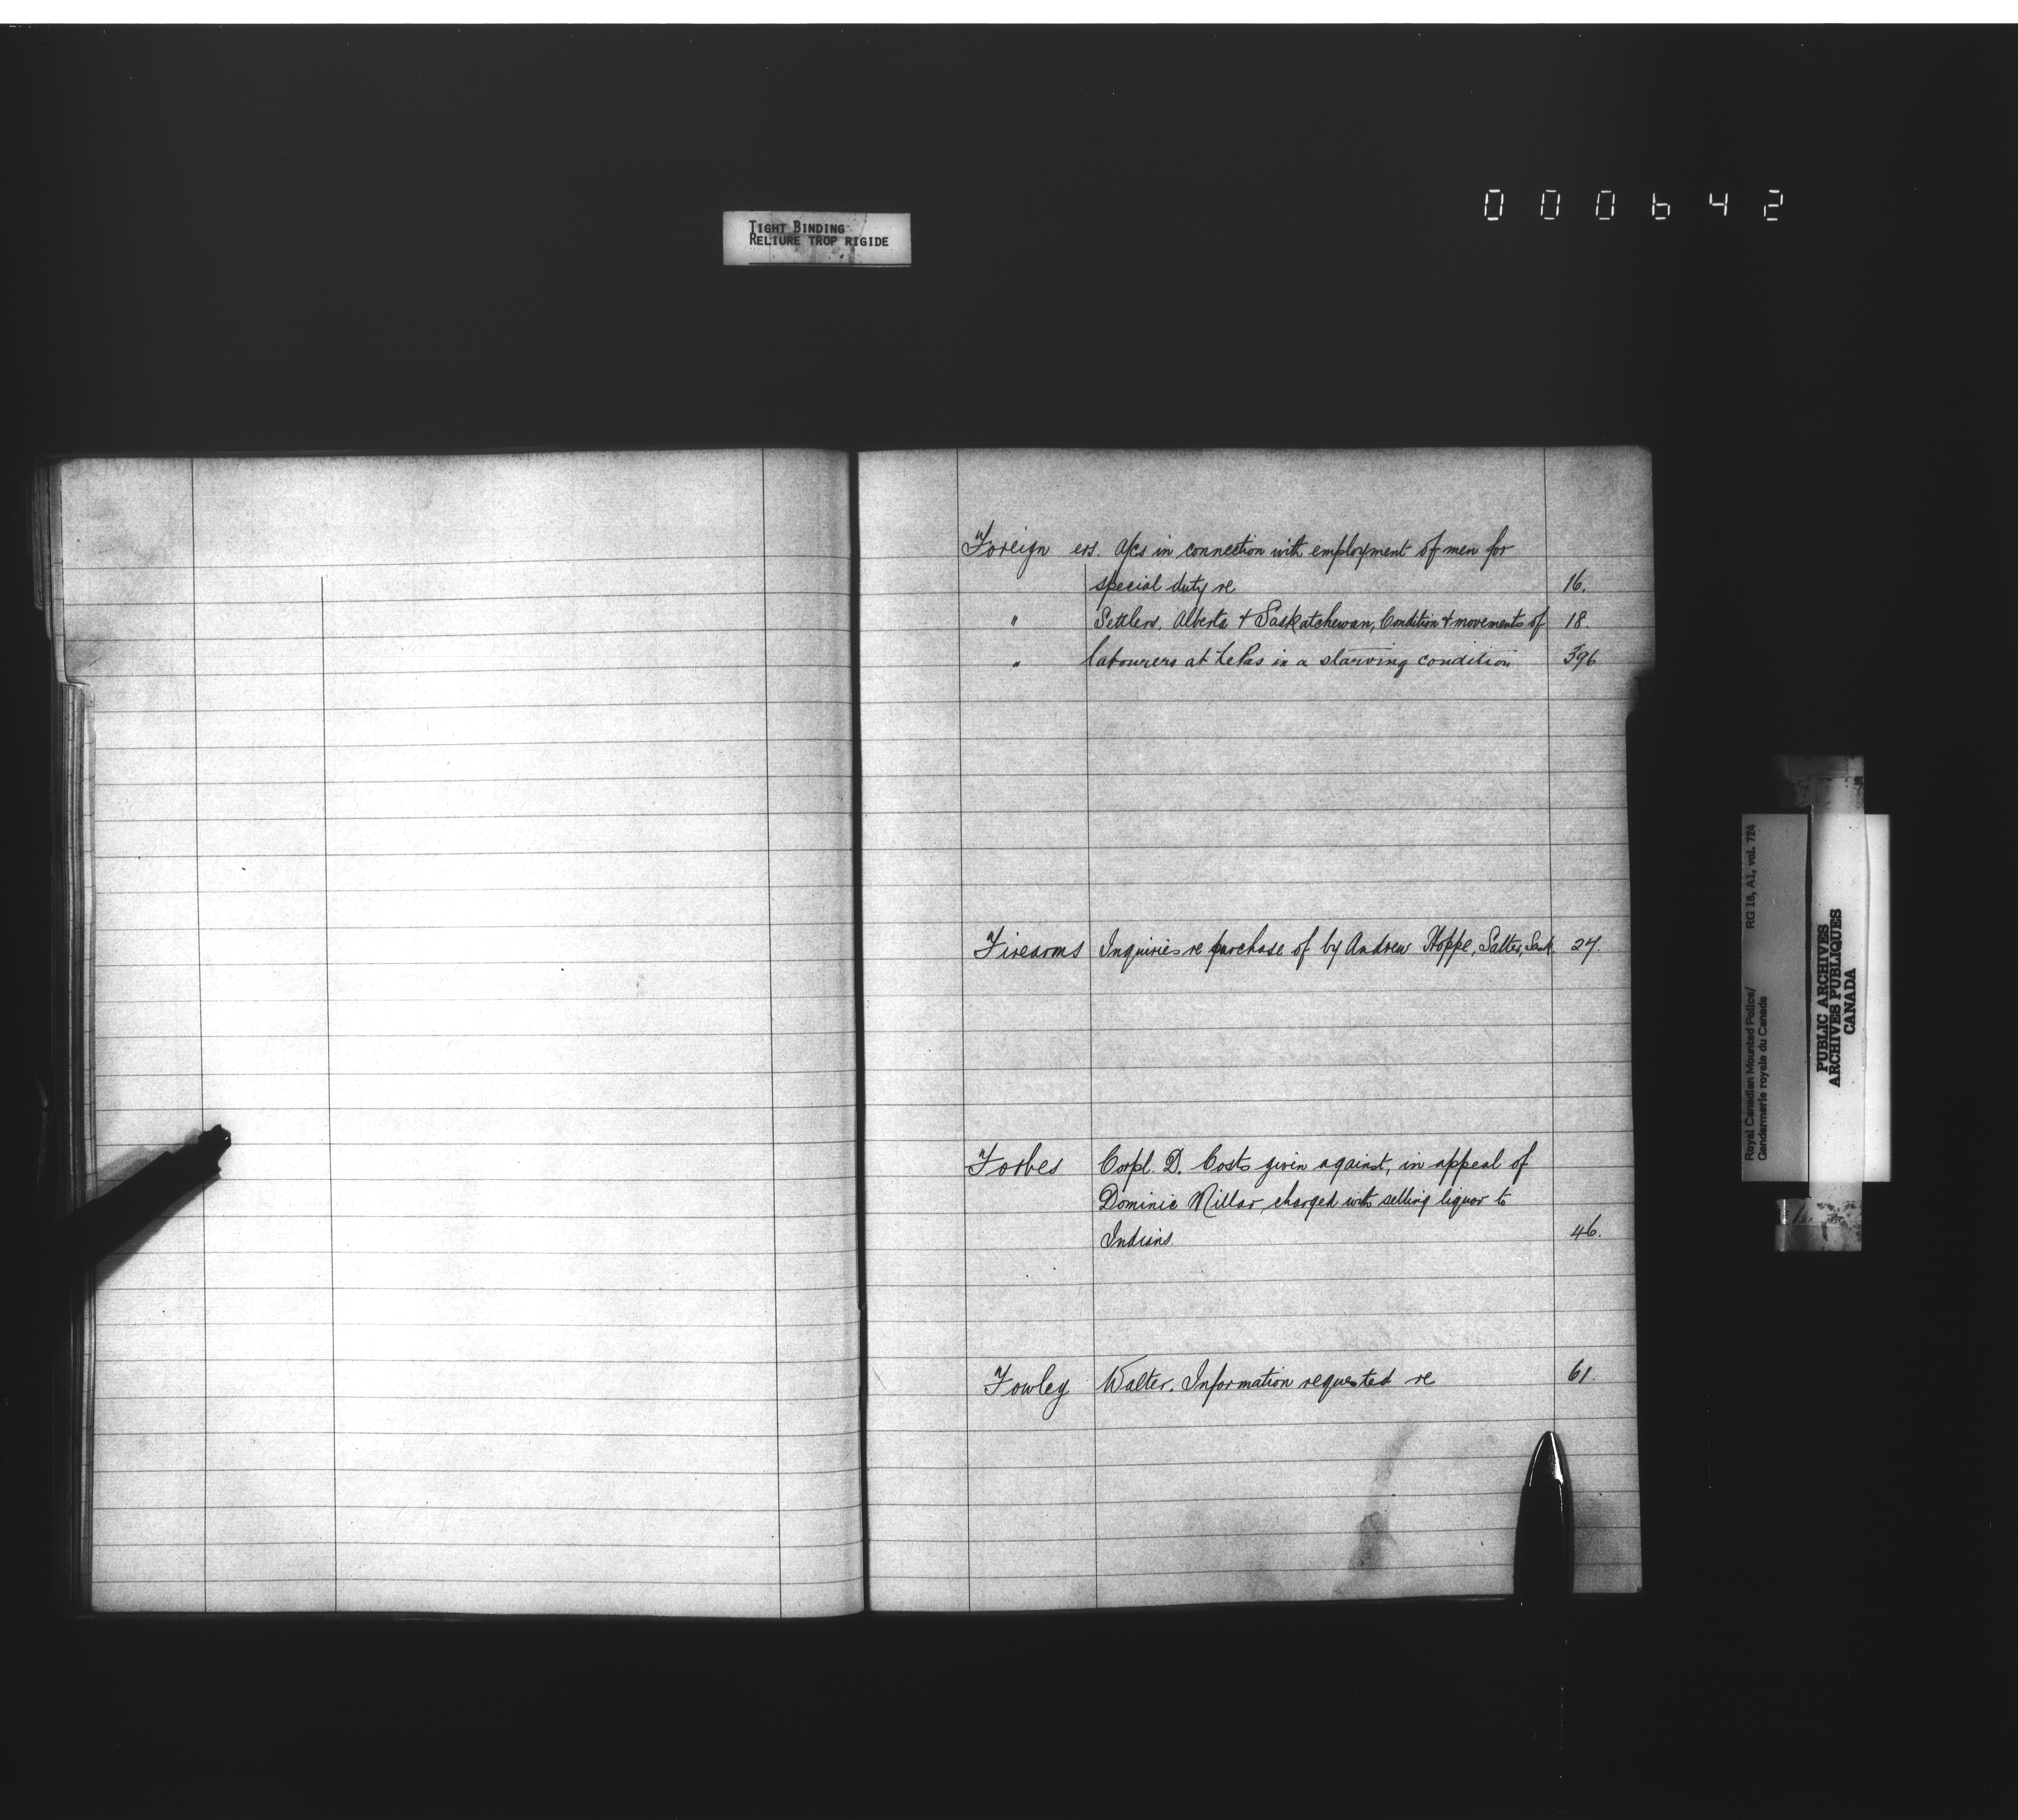 000642
TIGHT BINDING
RELIURE TROP RIGIDE
Foreign ers. A/cs in connection with employment of men for
special duty re 16.
" Settlers, Alberta & Saskatchewan, Condition & movements of 18
" labourers at Le Pas in a starving condition 396
Firearms Inquiries re purchase of by Andrew Hoppe, Salter, Sask. 27.
Forbes Corpl. D. Costs given against, in appeal of
Dominic Millar, charged with selling liquor to
Indians. 46.
Fowley Walter. Information requested re 61.
Royal Canadian Mounted Police/ RG 18, A1, vol. 724
Gendarmerie royale du Canada
PUBLIC ARCHIVES
ARCHIVES PUBLIQUES
CANADA